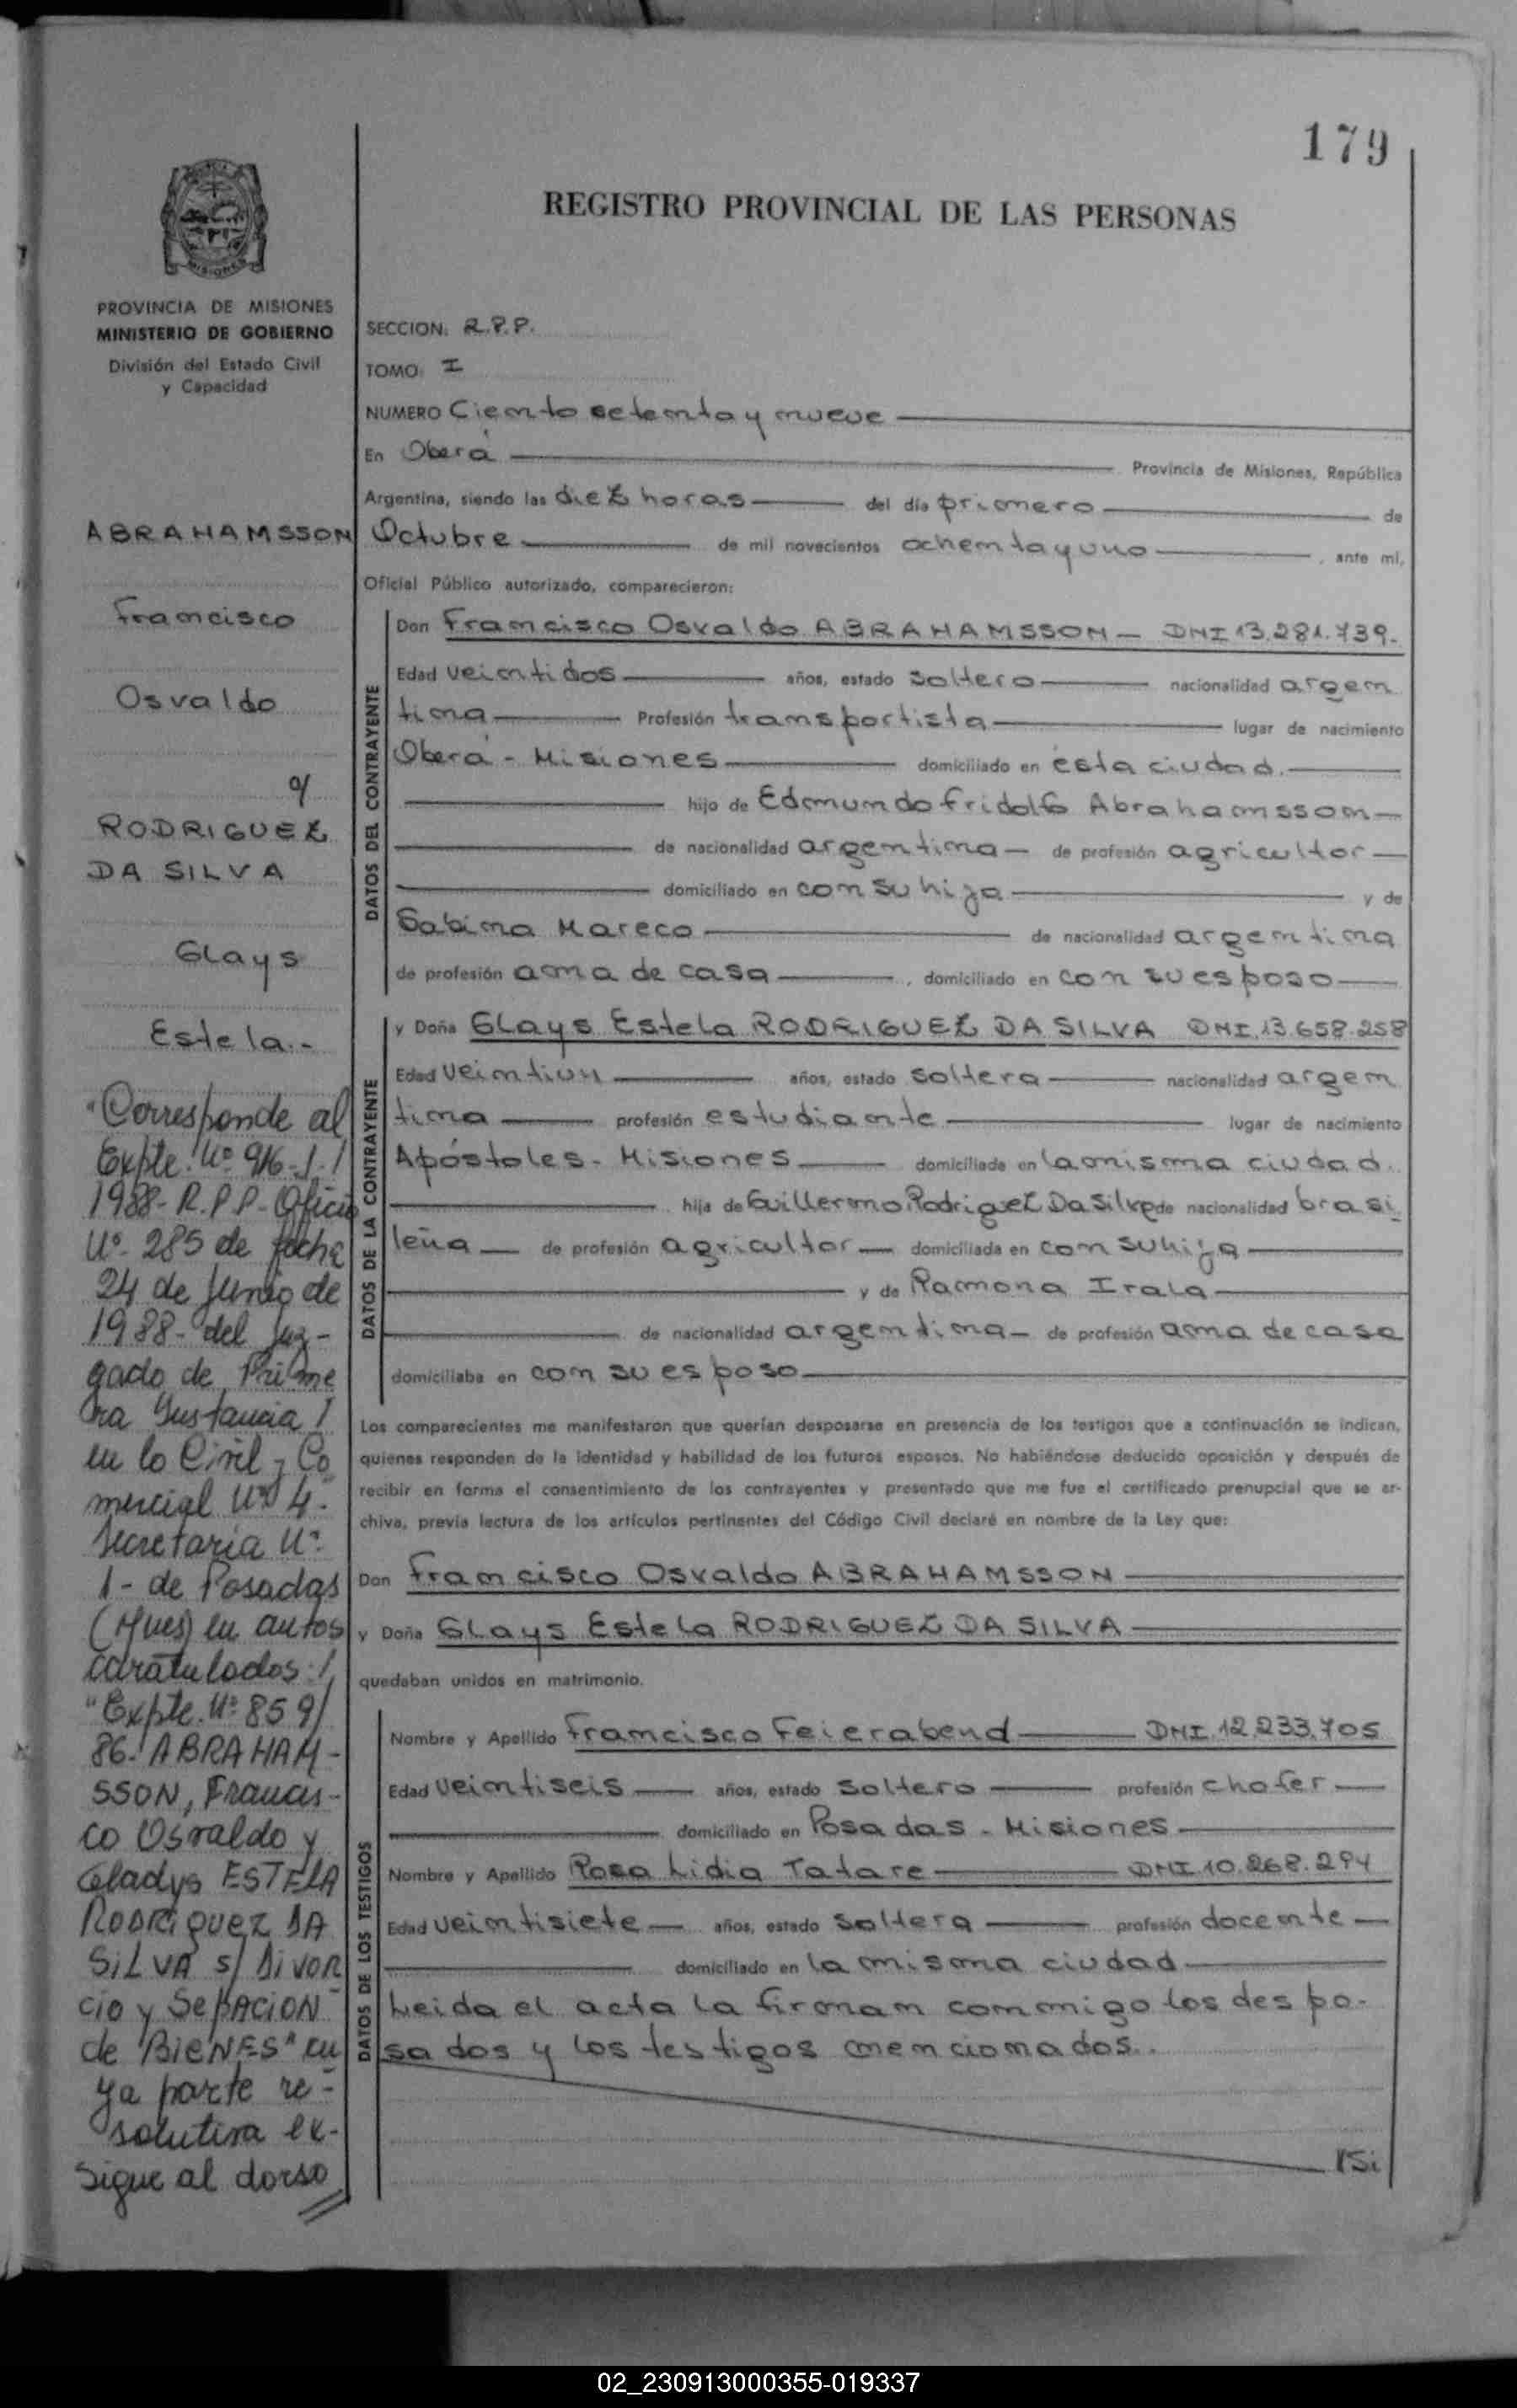 179
REGISTRO PROVINCIAL DE LAS PERSONAS
MISIONES
PROVINCIA DE MISIONES
MINISTERIO DE GOBIERNO
División del Estado Civil
y Capacidad
ABRAHAMSSON
Francisco
Osvaldo
c/
RODRIGUEZ
DA SILVA
Glays
Estela.-
"Corresponde al
Expte. Nº 916-J-/
1988- R.P.P- Oficio
Nº- 285 de fecha
24 de Junio de
1988- del Juz-
gado de Prime
ra Instancia /
en lo Civil y Co
mercial Nº 4-
Secretaría Nº
1- de Posadas
(Mnes) en autos
caratulados:/
"Expte. Nº 859/
86- ABRAHAM-
SSON, Francis-
co Osvaldo y
Gladys ESTELA
RODRIGUEZ DA
SILVA s/ DIVOR
cio y SEPACION
de BIENES" cu
ya parte re-
solutiva ex-
Sigue al dorso
SECCION: R.P.P.
TOMO: I
NUMERO Ciento setenta y nueve
En Oberá Provincia de Misiones, República
Argentina, siendo las diez horas del día primero de
Octubre de mil novecientos ochenta y uno, ante mí,
Oficial Público autorizado, comparecieron:
DATOS DEL CONTRAYENTE
Don Francisco Osvaldo ABRAHAMSSON - DNI 13.281.739.
Edad veintidos años, estado soltero nacionalidad argen
tina Profesión transportista lugar de nacimiento
Oberá - Misiones domiciliado en ésta ciudad.
hijo de Edmundo Fridolfo Abrahamsson
de nacionalidad argentina de profesión agricultor
domiciliado en con su hija y de
Sabina Mareco de nacionalidad argentina
de profesión ama de casa, domiciliado en con su esposo
DATOS DE LA CONTRAYENTE
y Doña Glays Estela RODRIGUEZ DA SILVA DNI. 13.658.258
Edad veintiun años, estado soltera nacionalidad argen
tina profesión estudiante lugar de nacimiento
Apóstoles - Misiones domiciliada en la misma ciudad.
hija de Guillermo Rodriguez Da Silva de nacionalidad brasi
leña de profesión agricultor domiciliada en con su hija
y de Ramona Irala
de nacionalidad argentina de profesión ama de casa
domiciliaba en con su esposo
Los comparecientes me manifestaron que querían desposarse en presencia de los testigos que a continuación se indican,
quienes responden de la identidad y habilidad de los futuros esposos. No habiéndose deducido oposición y después de
recibir en forma el consentimiento de los contrayentes y presentado que me fue el certificado prenupcial que se ar-
chiva, previa lectura de los artículos pertinentes del Código Civil declaré en nombre de la Ley que:
Don Francisco Osvaldo ABRAHAMSSON
y Doña Glays Estela RODRIGUEZ DA SILVA
quedaban unidos en matrimonio.
DATOS DE LOS TESTIGOS
Nombre y Apellido Francisco Feierabend DNI. 12.233.705
Edad veintiseis años, estado soltero profesión chofer
domiciliado en Posadas - Misiones
Nombre y Apellido Rosa Lidia Tatare DNI. 10.268.294
Edad veintisiete años, estado soltera profesión docente
domiciliado en la misma ciudad
Leida el acta la firman conmigo los despo-
sados y los testigos mencionados..
02_230913000355-019337